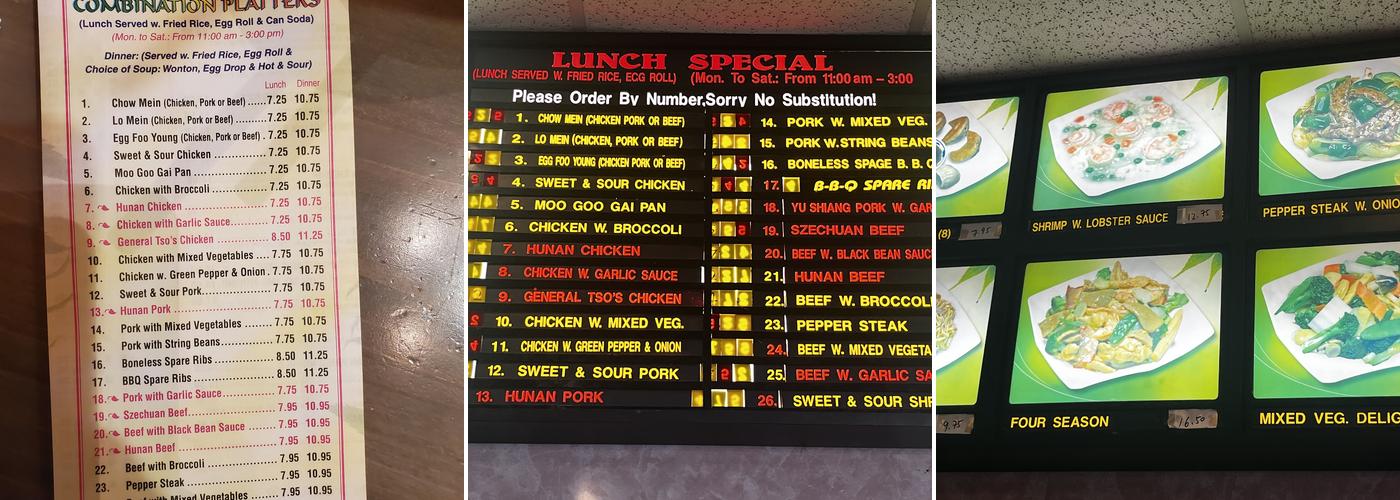 COMBINATION PLATTERS
(Lunch Served w. Fried Rice, Egg Roll & Can Soda)
(Mon. to Sat.: From 11:00 am - 3:00 pm)
Dinner: (Served w. Fried Rice, Egg Roll &
Choice of Soup: Wonton, Egg Drop & Hot & Sour)
Lunch Dinner
1. Chow Mein (Chicken, Pork or Beef) ......7.25 10.75
2. Lo Mein (Chicken, Pork or Beef) ..........7.25 10.75
3. Egg Foo Young (Chicken, Pork or Beef) . 7.25 10.75
4. Sweet & Sour Chicken ..................7.25 10.75
5. Moo Goo Gai Pan .......................7.25 10.75
6. Chicken with Broccoli ...................7.25 10.75
7. Hunan Chicken ..........................7.25 10.75
8. Chicken with Garlic Sauce.............7.25 10.75
9. General Tso's Chicken .................8.50 11.25
10. Chicken with Mixed Vegetables ....7.75 10.75
11. Chicken w. Green Pepper & Onion . 7.75 10.75
12. Sweet & Sour Pork.....................7.75 10.75
13. Hunan Pork ..............................7.75 10.75
14. Pork with Mixed Vegetables .........7.75 10.75
15. Pork with String Beans ................7.75 10.75
16. Boneless Spare Ribs ..................8.50 11.25
17. BBQ Spare Ribs ........................8.50 11.25
18. Pork with Garlic Sauce................7.75 10.75
19. Szechuan Beef..........................7.95 10.95
20. Beef with Black Bean Sauce ........7.95 10.95
21. Hunan Beef ..............................7.95 10.95
22. Beef with Broccoli ......................7.95 10.95
23. Pepper Steak ............................7.95 10.95
Beef with Mixed Vegetables ..........7.95 10.95
LUNCH SPECIAL
(LUNCH SERVED W. FRIED RICE, ECG ROLL) (Mon. To Sat.: From 11:00 am – 3:00
Please Order By Number,Sorry No Substitution!
1. CHOW MEIN (CHICKEN PORK OR BEEF)
2. LO MEIN (CHICKEN PORK OR BEEF)
3. EGG FOO YOUNG (CHICKEN PORK OR BEEF)
4. SWEET & SOUR CHICKEN
5. MOO GOO GAI PAN
6. CHICKEN W. BROCCOLI
7. HUNAN CHICKEN
8. CHICKEN W. GARLIC SAUCE
9. GENERAL TSO'S CHICKEN
10. CHICKEN W. MIXED VEG.
11. CHICKEN W. GREEN PEPPER & ONION
12. SWEET & SOUR PORK
13. HUNAN PORK
14. PORK W. MIXED VEG.
15. PORK W.STRING BEANS
16. BONELESS SPAGE B. B.
17. B-B-Q SPARE
18. YU SHIANG PORK W. GAR
19. SZECHUAN BEEF
20. BEEF W. BLACK BEAN SAUC
21. HUNAN BEEF
22. BEEF W. BROCCOLI
23. PEPPER STEAK
24. BEEF W. MIXED VEGETA
25. BEEF W. GARLIC SA
26. SWEET & SOUR SHR
(8) 7.95
SHRIMP W. LOBSTER SAUCE 12.75
PEPPER STEAK W. ONIO
9.75
FOUR SEASON 16.50
MIXED VEG. DELIG